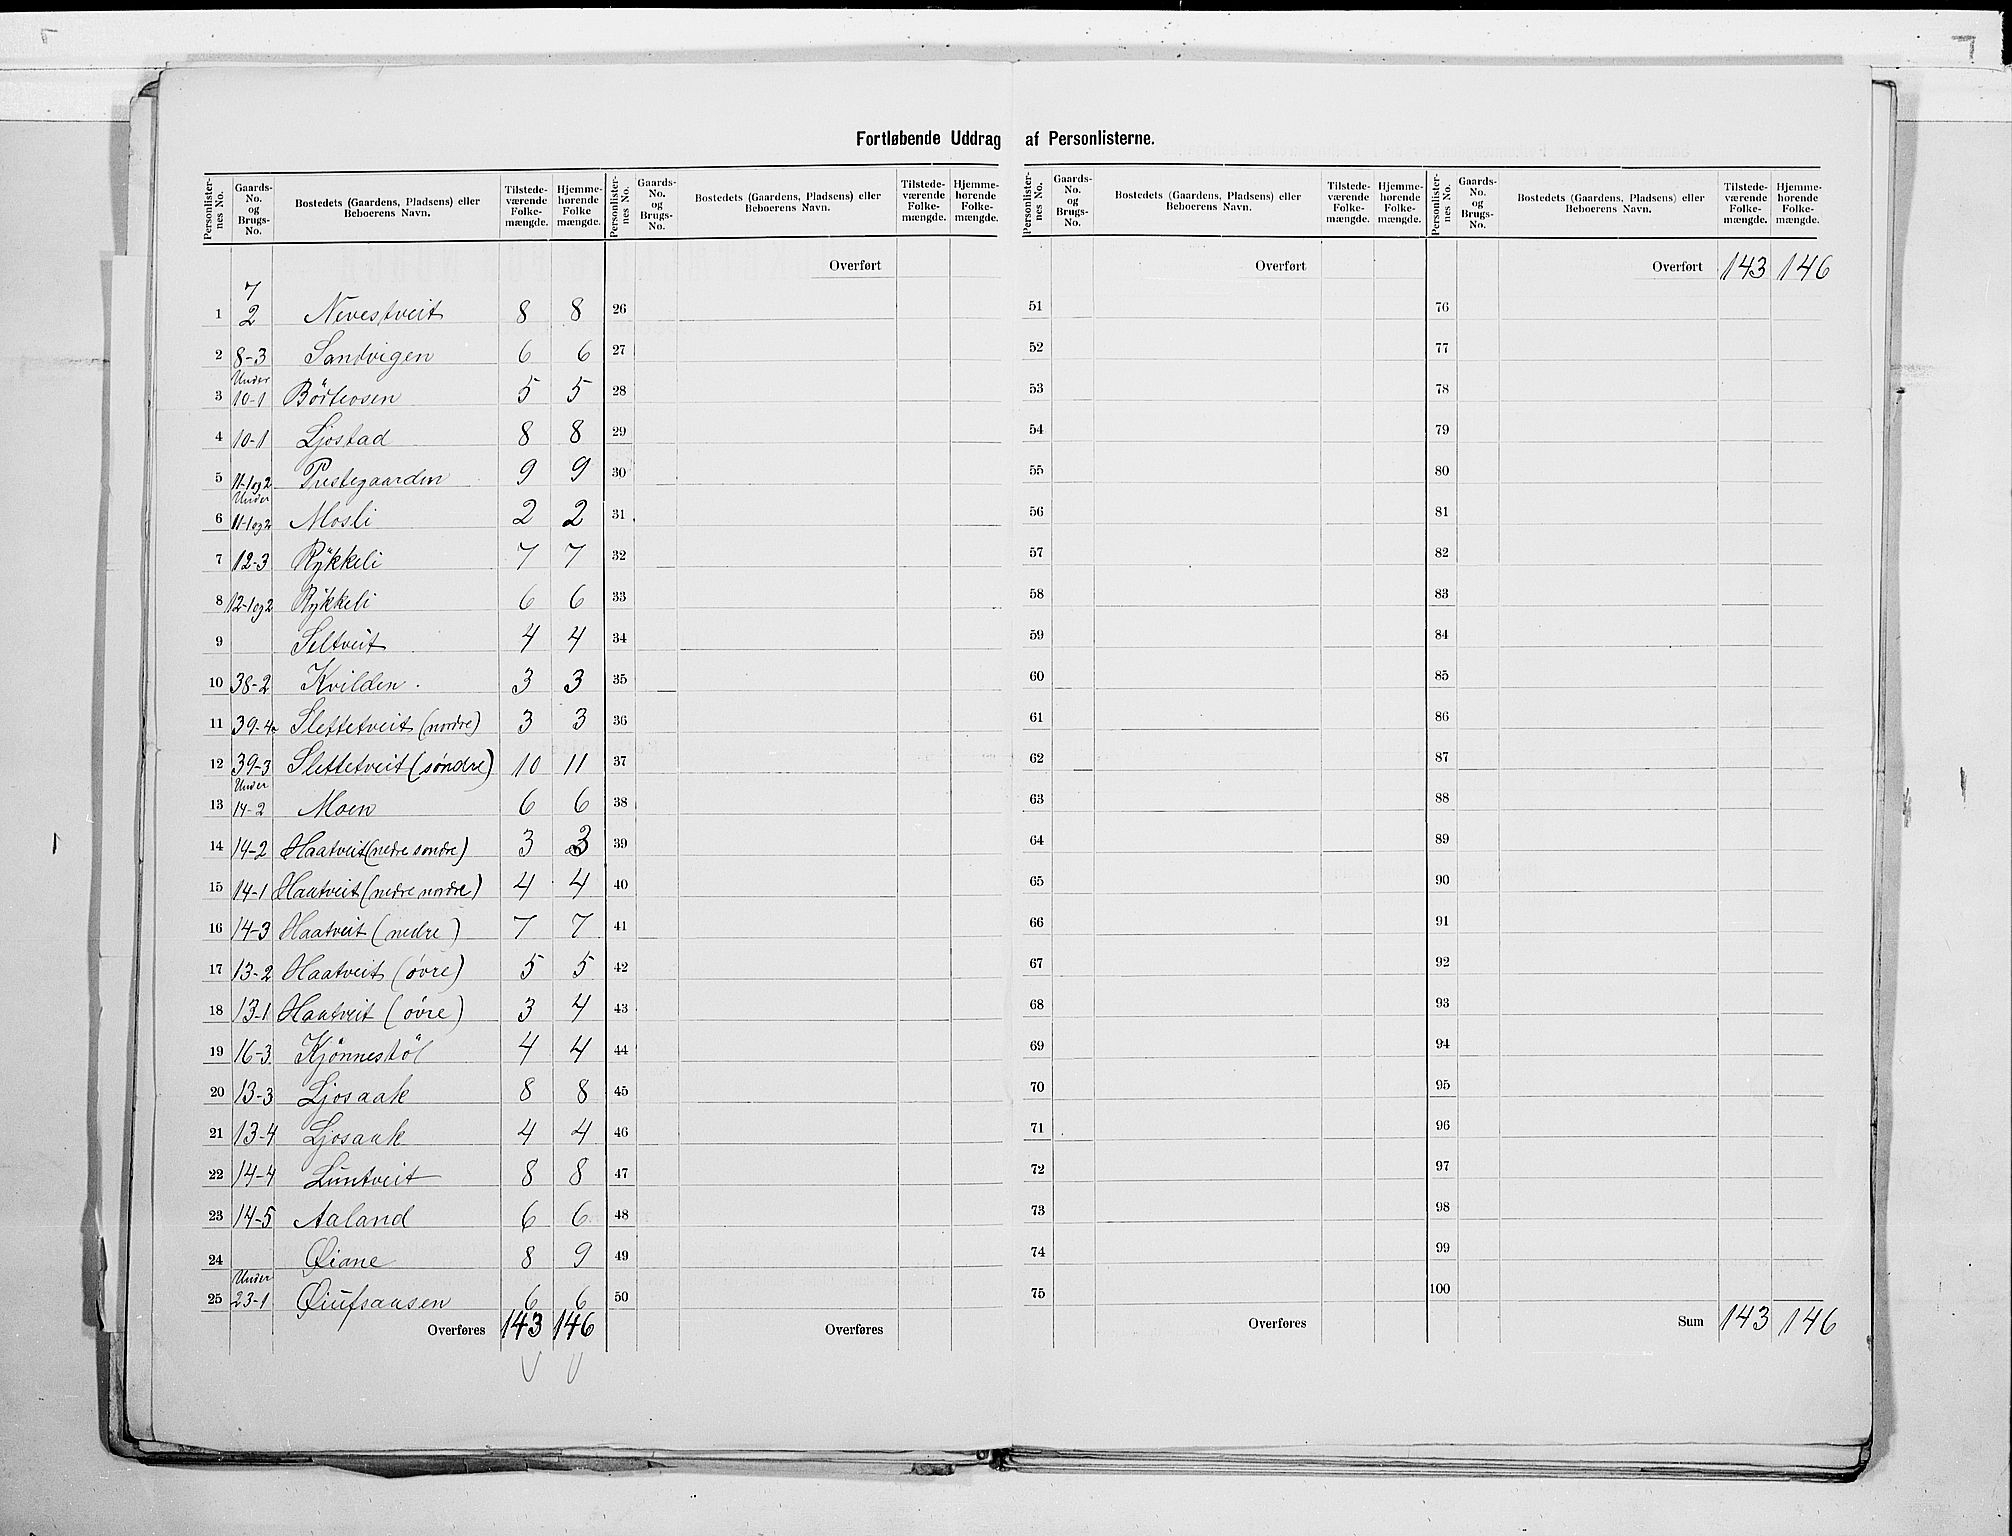 Fortløbende Uddrag af Personlisterne.
Personlister-nes No. | Gaards-No. og Brugs-No. | Bostedets (Gaardens, Pladsens) eller Beboerens Navn. | Tilstede-værende Folke-mængde. | Hjemme-hørende Folke mængde. | Personlister-nes No. | Gaards-No. og Brugs-No. | Bostedets (Gaardens, Pladsens) eller Beboerens Navn. | Tilstede-værende Folke-mængde. | Hjemme-hørende Folke-mængde. | Personlister-nes No. | Gaards-No. og Brugs-No. | Bostedets (Gaardens, Pladsens) eller Beboerens Navn. | Tilstede-værende Folke-mængde. | Hjemme-hørende Folke-mængde. | Personlister-nes No. | Gaards-No. og Brugs-No. | Bostedets (Gaardens, Pladsens) eller Beboerens Navn. | Tilstede-værende Folke-mængde. | Hjemme-hørende Folke-mængde.
Overført Overført Overført 143 146
7
1 2 Nevestveit 8 8 26 51 76
2 8-3 Sandvigen 6 6 27 52 77
Under
3 10-1 Börteosen 5 5 28 53 78
4 10-1 Ljostad 8 8 29 54 79
5 11-1og2 Prestegaarden 9 9 30 55 80
Under
6 11-1og2 Mosli 2 2 31 56 81
7 12-3 Rykkeli 7 7 32 57 82
8 12-1og2 Rykkeli 6 6 33 58 83
9 Seltveit 4 4 34 59 84
10 38-2 Kvilden. 3 3 35 60 85
11 39-4 Slettetveit (nordre) 3 3 36 61 86
12 39-3 Slettetveit (søndre) 10 11 37 62 87
Under
13 14-2 Moen 6 6 38 63 88
14 14-2 Haatveit (nedre søndre) 3 3 39 64 89
15 14-1 Haatveit (nedre nordre) 4 4 40 65 90
16 14-3 Haatveit (nedre) 7 7 41 66 91
17 13-2 Haatveit (øvre) 5 5 42 67 92
18 13-1 Haatveit (øvre) 3 4 43 68 93
19 16-3 Kjönnestöl 4 4 44 69 94
20 13-3 Ljosaak 8 8 45 70 95
21 13-4 Ljosaak 4 4 46 71 96
22 14-4 Luntveit 8 8 47 72 97
23 14-5 Aaland 6 6 48 73 98
24 Øiane 8 9 49 74 99
Under
25 23-1 Øiufsausen 6 6 50 75 100
Overføres 143 146 Overføres Overføres Sum 143 146